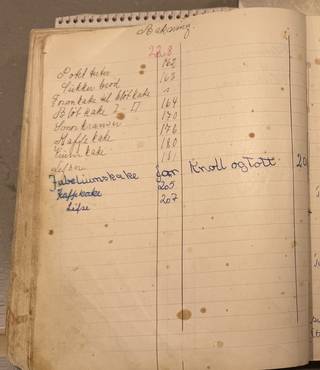 Baksning
228
162
Sukker brød 163
Formkake til blötkake "
Blöt kake I II 164
Smørkranser 170
Kaffe kake 176
kake 180
Jubeliumskake Knoll og Tott 20
Kaffekake 205
Lefse 207